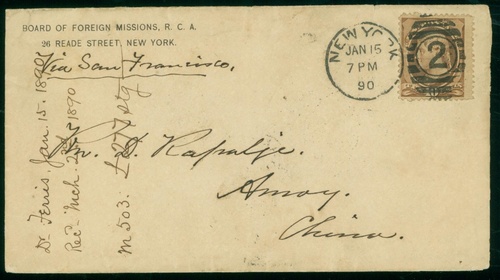 BOARD OF FOREIGN MISSIONS, R. C. A.
26 READE STREET, NEW YORK.
Via San Francisco.
NEW YORK
JAN 15
7 PM
90
2
D. Rapalje.
Amoy.
China.
Dr Ferris, Jan. 15. 1890
Rec. Mch. 1890
M 503.